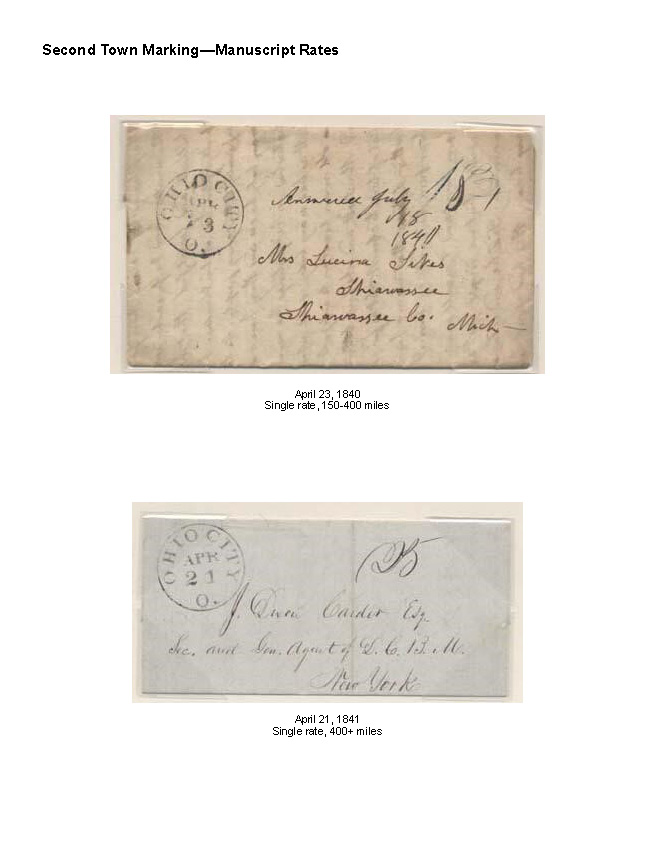 Second Town Marking—Manuscript Rates
OHIO CITY
APR
23
O.
Answered July
18
1841
Mrs Lucina Sikes
Shiawassee
Shiawassee Co. Mich
April 23, 1840
Single rate, 150-400 miles
OHIO CITY
APR
21
O.
25
J. Owen Carder Esq.
Sec. and Gen. Agent of L. C. B. M.
New York
April 21, 1841
Single rate, 400+ miles